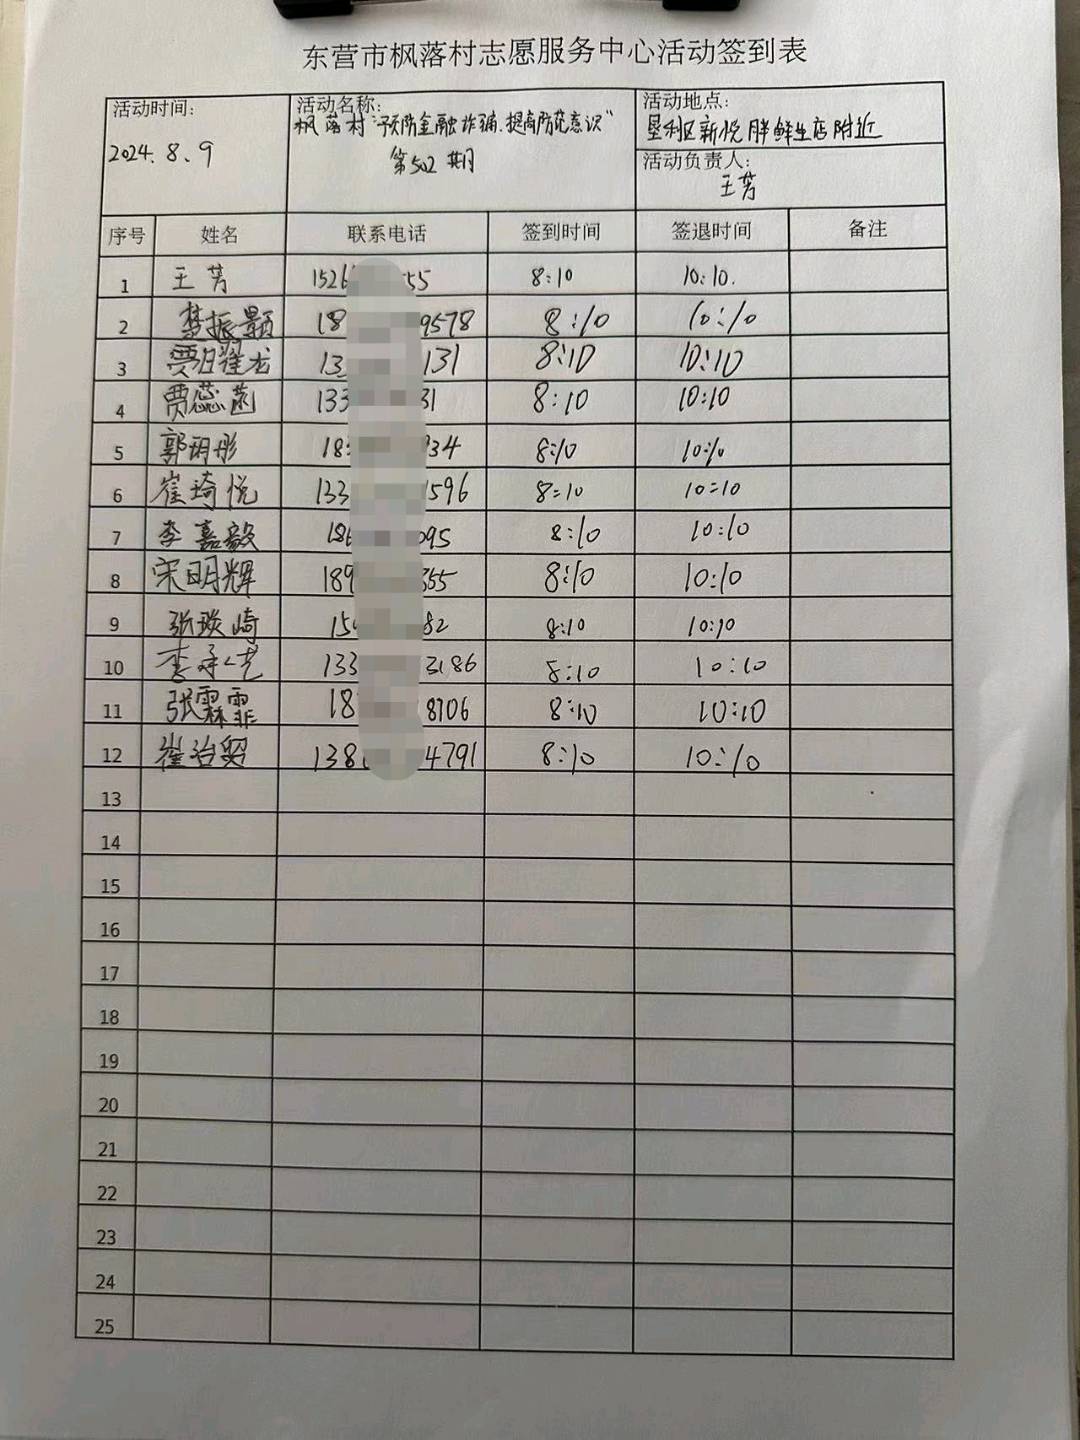 东营市枫落村志愿服务中心活动签到表
活动时间:
2024.8.9
活动名称:
枫落村"预防金融诈骗、提高防范意识"
第502期
活动地点:
垦利区新悦胖鲜生店附近
活动负责人:
王芳
序号 姓名 联系电话 签到时间 签退时间 备注
1 王芳 1526 55 8:10 10:10.
2 楚振颢 18 9578 8:10 10:10
3 贾 龙 13 131 8:10 10:10
4 贾蕊菡 133 31 8:10 10:10
5 郭玥彤 18 934 8:10 10:10
6 崔琦悦 133 1596 8:10 10:10
7 李嘉毅 186 095 8:10 10:10
8 宋明辉 189 365 8:10 10:10
9 张琰崎 15 82 8:10 10:10
10 李承艺 133 3186 8:10 10:10
11 张霖霏 18 8706 8:10 10:10
12 崔治 138 4791 8:10 10:10
13
14
15
16
17
18
19
20
21
22
23
24
25